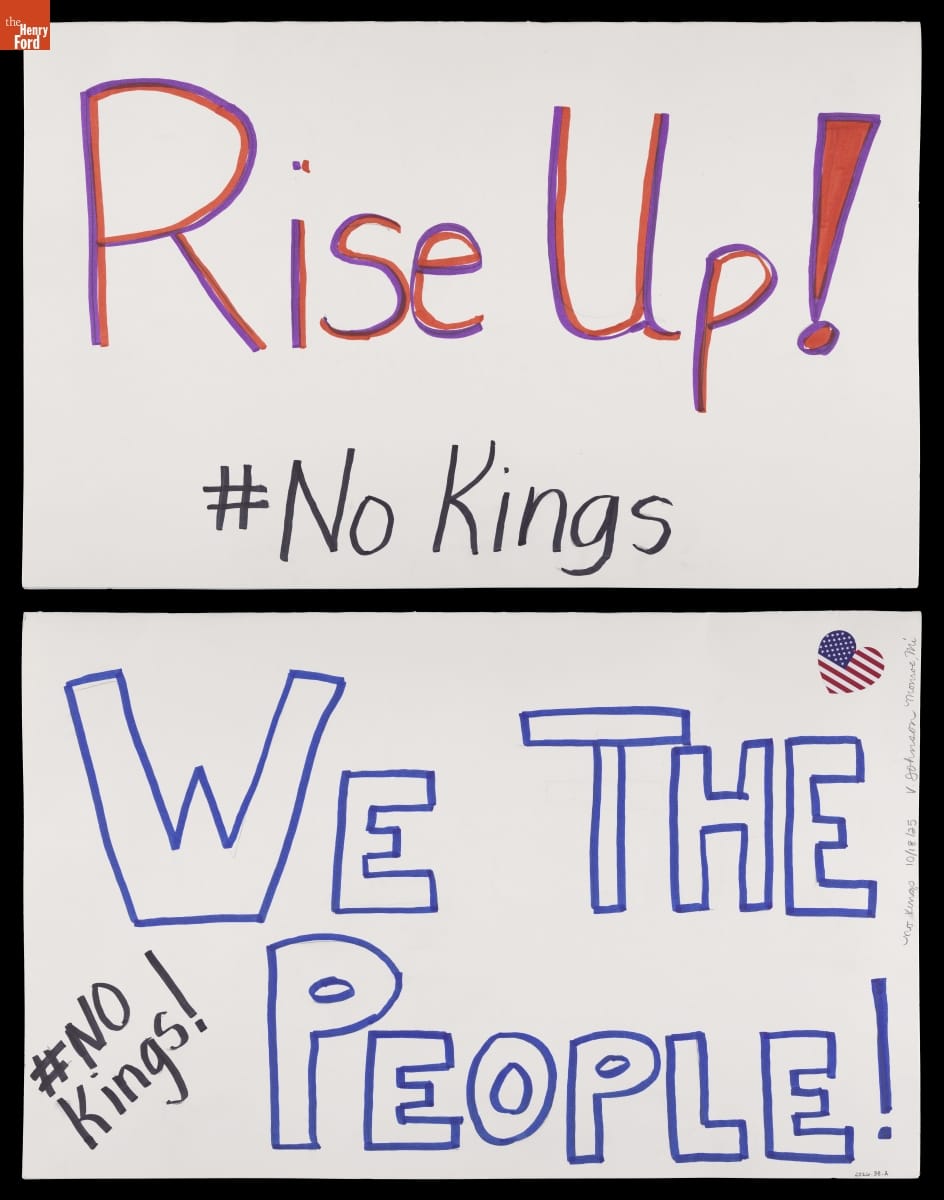 the
Henry
Ford
Rise Up!
#No Kings
WE THE
PEOPLE!
#NO
Kings!
No Kings 10/18/25 V Johnson Monroe, Mi
2026.38.2